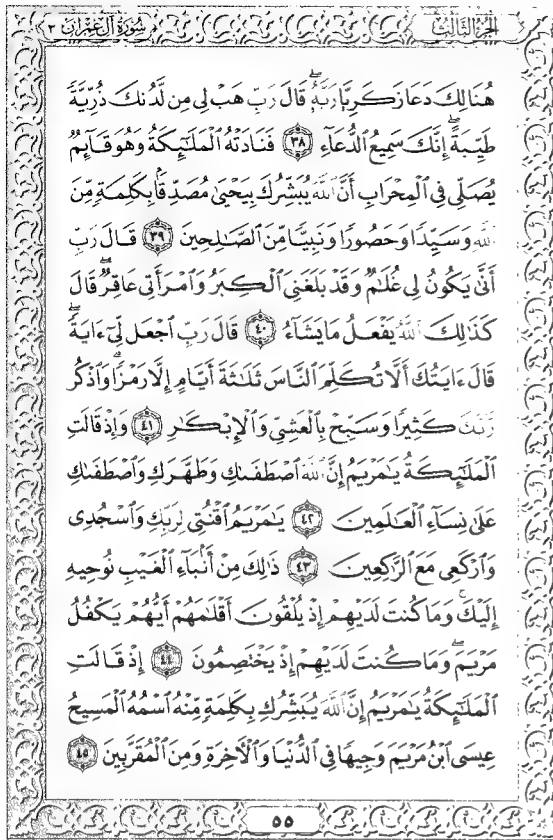 سُورَةُ آلِ عِمْرَانَ ٣
الجُزْءُ الثَّالِثُ
هُنَالِكَ دَعَا زَكَرِيَّا رَبَّهُۥۖ قَالَ رَبِّ هَبْ لِى مِن لَّدُنكَ ذُرِّيَّةً
طَيِّبَةًۖ إِنَّكَ سَمِيعُ ٱلدُّعَآءِ ٣٨ فَنَادَتْهُ ٱلْمَلَٰٓئِكَةُ وَهُوَ قَآئِمٌ
يُصَلِّى فِى ٱلْمِحْرَابِ أَنَّ ٱللَّهَ يُبَشِّرُكَ بِيَحْيَىٰ مُصَدِّقًۢا بِكَلِمَةٍ مِّنَ
ٱللَّهِ وَسَيِّدًا وَحَصُورًا وَنَبِيًّا مِّنَ ٱلصَّٰلِحِينَ ٣٩ قَالَ رَبِّ
أَنَّىٰ يَكُونُ لِى غُلَٰمٌ وَقَدْ بَلَغَنِىَ ٱلْكِبَرُ وَٱمْرَأَتِى عَاقِرٌۖ قَالَ
كَذَٰلِكَ ٱللَّهُ يَفْعَلُ مَا يَشَآءُ ٤٠ قَالَ رَبِّ ٱجْعَل لِّىٓ ءَايَةًۖ
قَالَ ءَايَتُكَ أَلَّا تُكَلِّمَ ٱلنَّاسَ ثَلَٰثَةَ أَيَّامٍ إِلَّا رَمْزًاۗ وَٱذْكُر
رَّبَّكَ كَثِيرًا وَسَبِّحْ بِٱلْعَشِىِّ وَٱلْإِبْكَٰرِ ٤١ وَإِذْ قَالَتِ
ٱلْمَلَٰٓئِكَةُ يَٰمَرْيَمُ إِنَّ ٱللَّهَ ٱصْطَفَىٰكِ وَطَهَّرَكِ وَٱصْطَفَىٰكِ
عَلَىٰ نِسَآءِ ٱلْعَٰلَمِينَ ٤٢ يَٰمَرْيَمُ ٱقْنُتِى لِرَبِّكِ وَٱسْجُدِى
وَٱرْكَعِى مَعَ ٱلرَّٰكِعِينَ ٤٣ ذَٰلِكَ مِنْ أَنۢبَآءِ ٱلْغَيْبِ نُوحِيهِ
إِلَيْكَۚ وَمَا كُنتَ لَدَيْهِمْ إِذْ يُلْقُونَ أَقْلَٰمَهُمْ أَيُّهُمْ يَكْفُلُ
مَرْيَمَۖ وَمَا كُنتَ لَدَيْهِمْ إِذْ يَخْتَصِمُونَ ٤٤ إِذْ قَالَتِ
ٱلْمَلَٰٓئِكَةُ يَٰمَرْيَمُ إِنَّ ٱللَّهَ يُبَشِّرُكِ بِكَلِمَةٍ مِّنْهُ ٱسْمُهُ ٱلْمَسِيحُ
عِيسَى ٱبْنُ مَرْيَمَ وَجِيهًا فِى ٱلدُّنْيَا وَٱلْءَاخِرَةِ وَمِنَ ٱلْمُقَرَّبِينَ ٤٥
٥٥